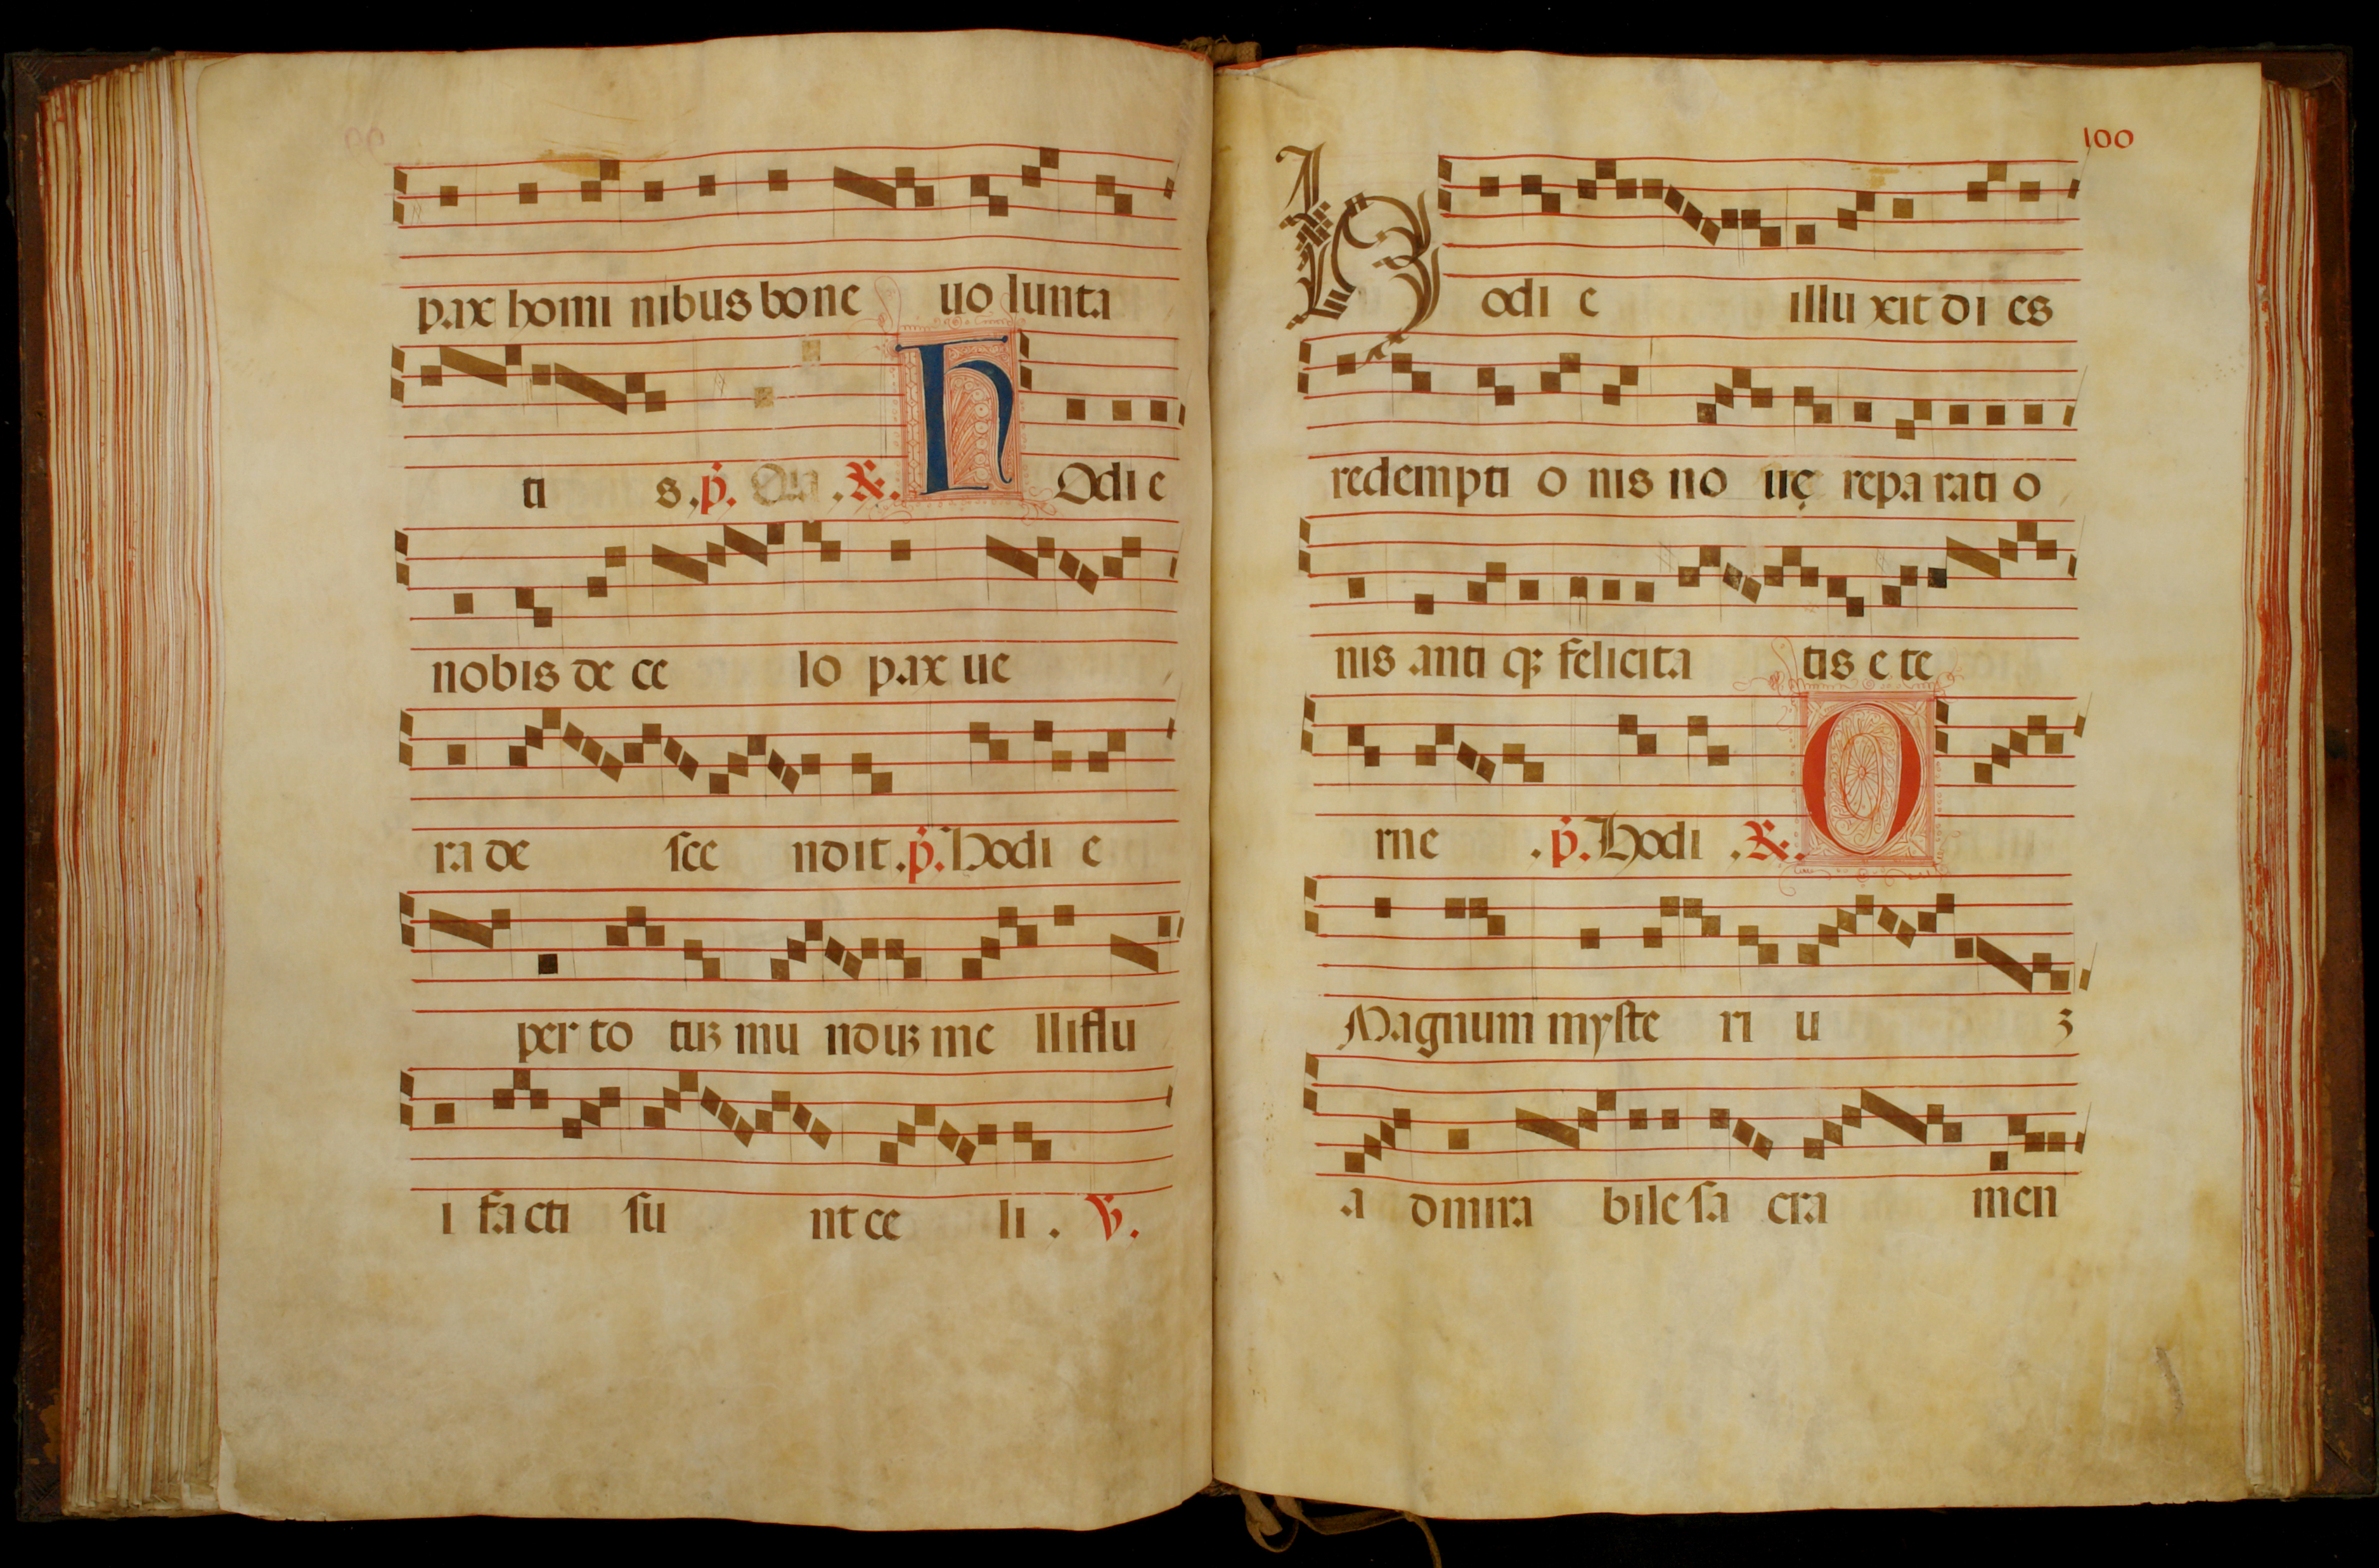 99
pax homi nibus bone uo lunta
ti s. p. . R. hOdi e
nobis de ce lo pax ue
ra de sce ndit. p. Hodi e
per to tuʒ mu nduʒ me lliflu
i fa cti su nt ce li. V.
100
Hodi e illu xit di es
redempti o nis no uę repa rati o
nis anti q; felicita tis e te
rne . p. Hodi . R. O
Magnum myste ri u ʒ
a dmira bile sa cra men